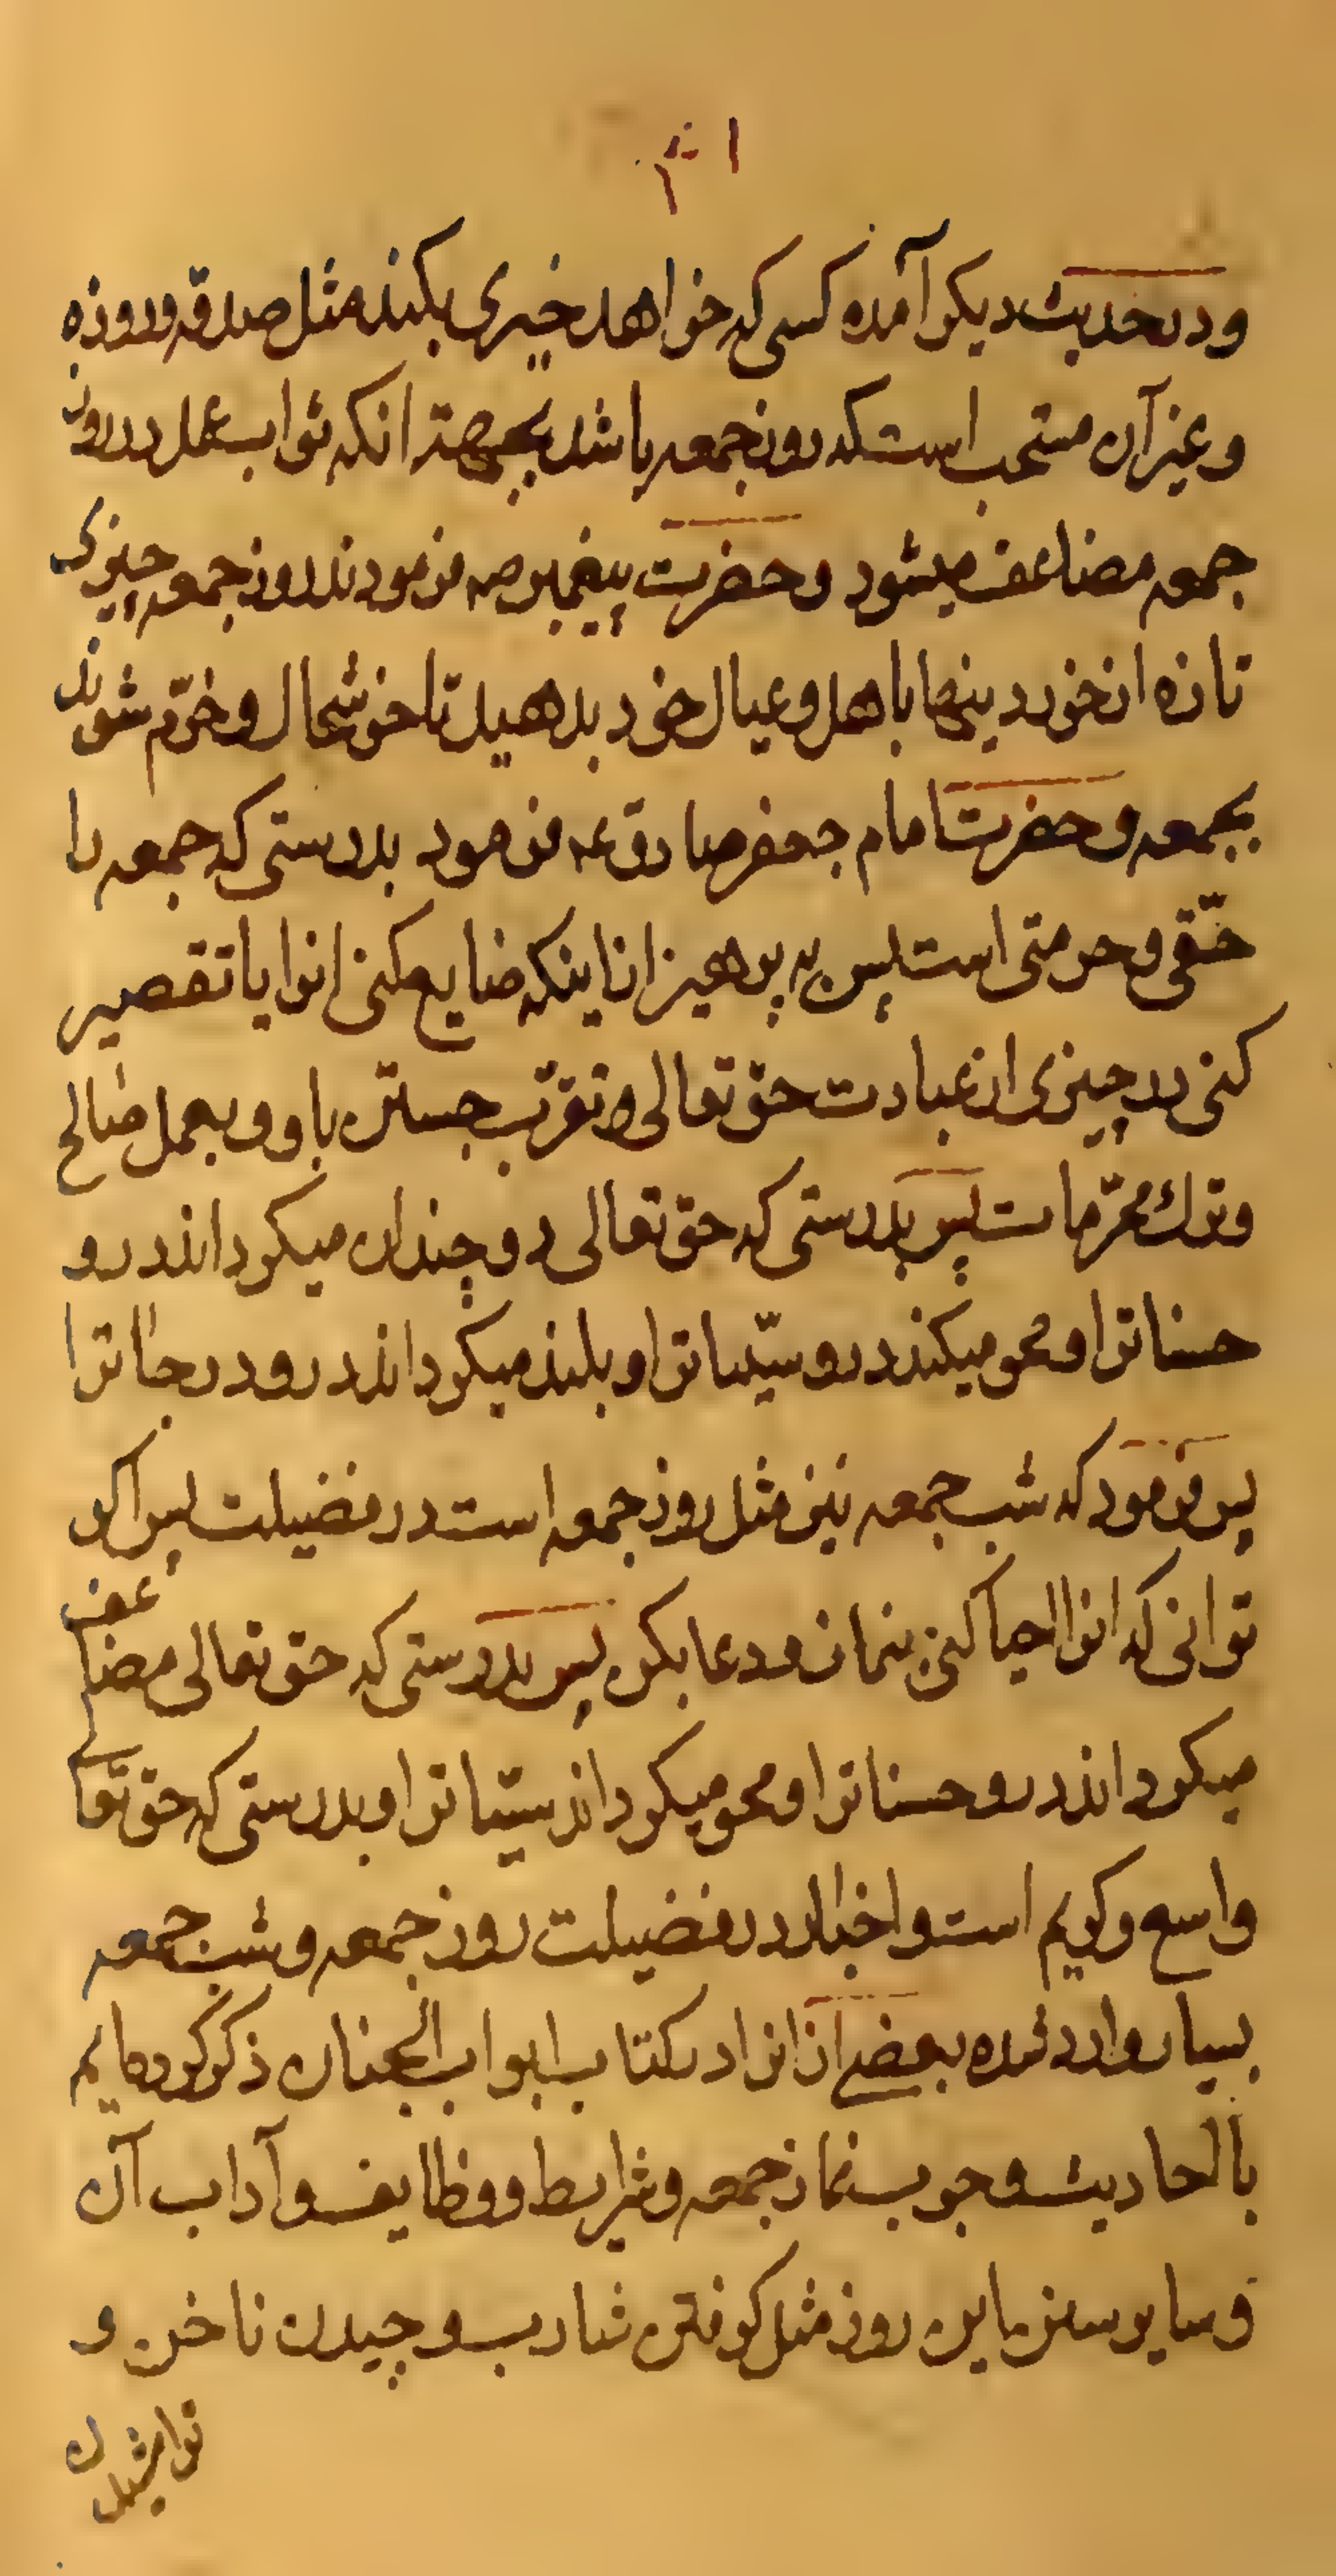 ودر حدیث دیکر آمده کسی که خواهد خیری بکند مثل صدقه وروزه
وغیر آن مستحب است که روز جمعه باشد بجهة انکه ثواب عمل در روز
جمعه مضاعف میشود وحضرت پیغمبر صه فرمودند روز جمعه چیزی
تازه از خوردینها باهل وعیال خود بدهید تا خوشحال وخرّم شوند
بجمعه وحضرت امام جعفر صادق عه فرمود بدرستی که جمعه را
حقّی وحرمتی است پس به پرهیز از اینکه ضایع کنی انرا یا تقصیر
کنی در چیزی از عبادت حق تعالی وتقرّب جستن باو وبعمل صالح
وترك محرّمات پس بدرستی که حق تعالی دوچندان میکرداند درو
حسنات را ومحو میکند درو سیّئات را وبلند میکرداند درو درجات را
پس فرمود که شب جمعه نیز مثل روز جمعه است در فضیلت پس اکر
توانی که انرا احیا کنی بنماز ودعا بکن پس بدرستی که حق تعالی مضاعف
میکرداند درو حسنات را ومحو میکرداند سیّئات را وبدرستی که حق تعالی
واسع وکریم است واخبار در فضیلت روز جمعه وشب جمعه
بسیار وارد شده بعضی از انرا در کتاب ابواب الجنان ذکر کرده‌ایم
با احادیث وجوب نماز جمعه وشرایط ووظایف وآداب آن
وسایر سنن این روز مثل کرفتن شارب وچیدن ناخن و
تراشیدن